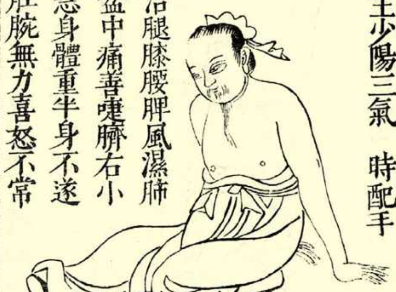 主少陽三氣　時配手
治腿膝腰脾風濕肺
盆中痛善嚏臍右小
急身體重半身不遂
肛腕無力喜怒不常